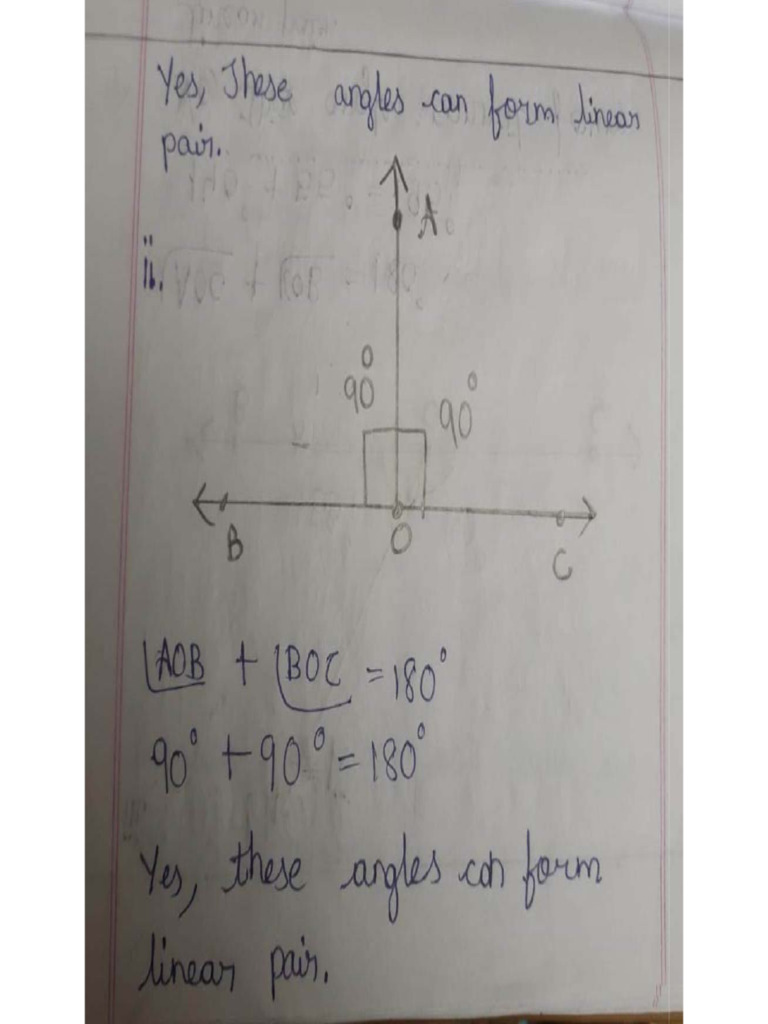 Yes, These angles can form linear
pair.
ii.
A
90°
90°
B
O
C
∠AOB + ∠BOC = 180°
90° + 90° = 180°
Yes, these angles can form
linear pair.